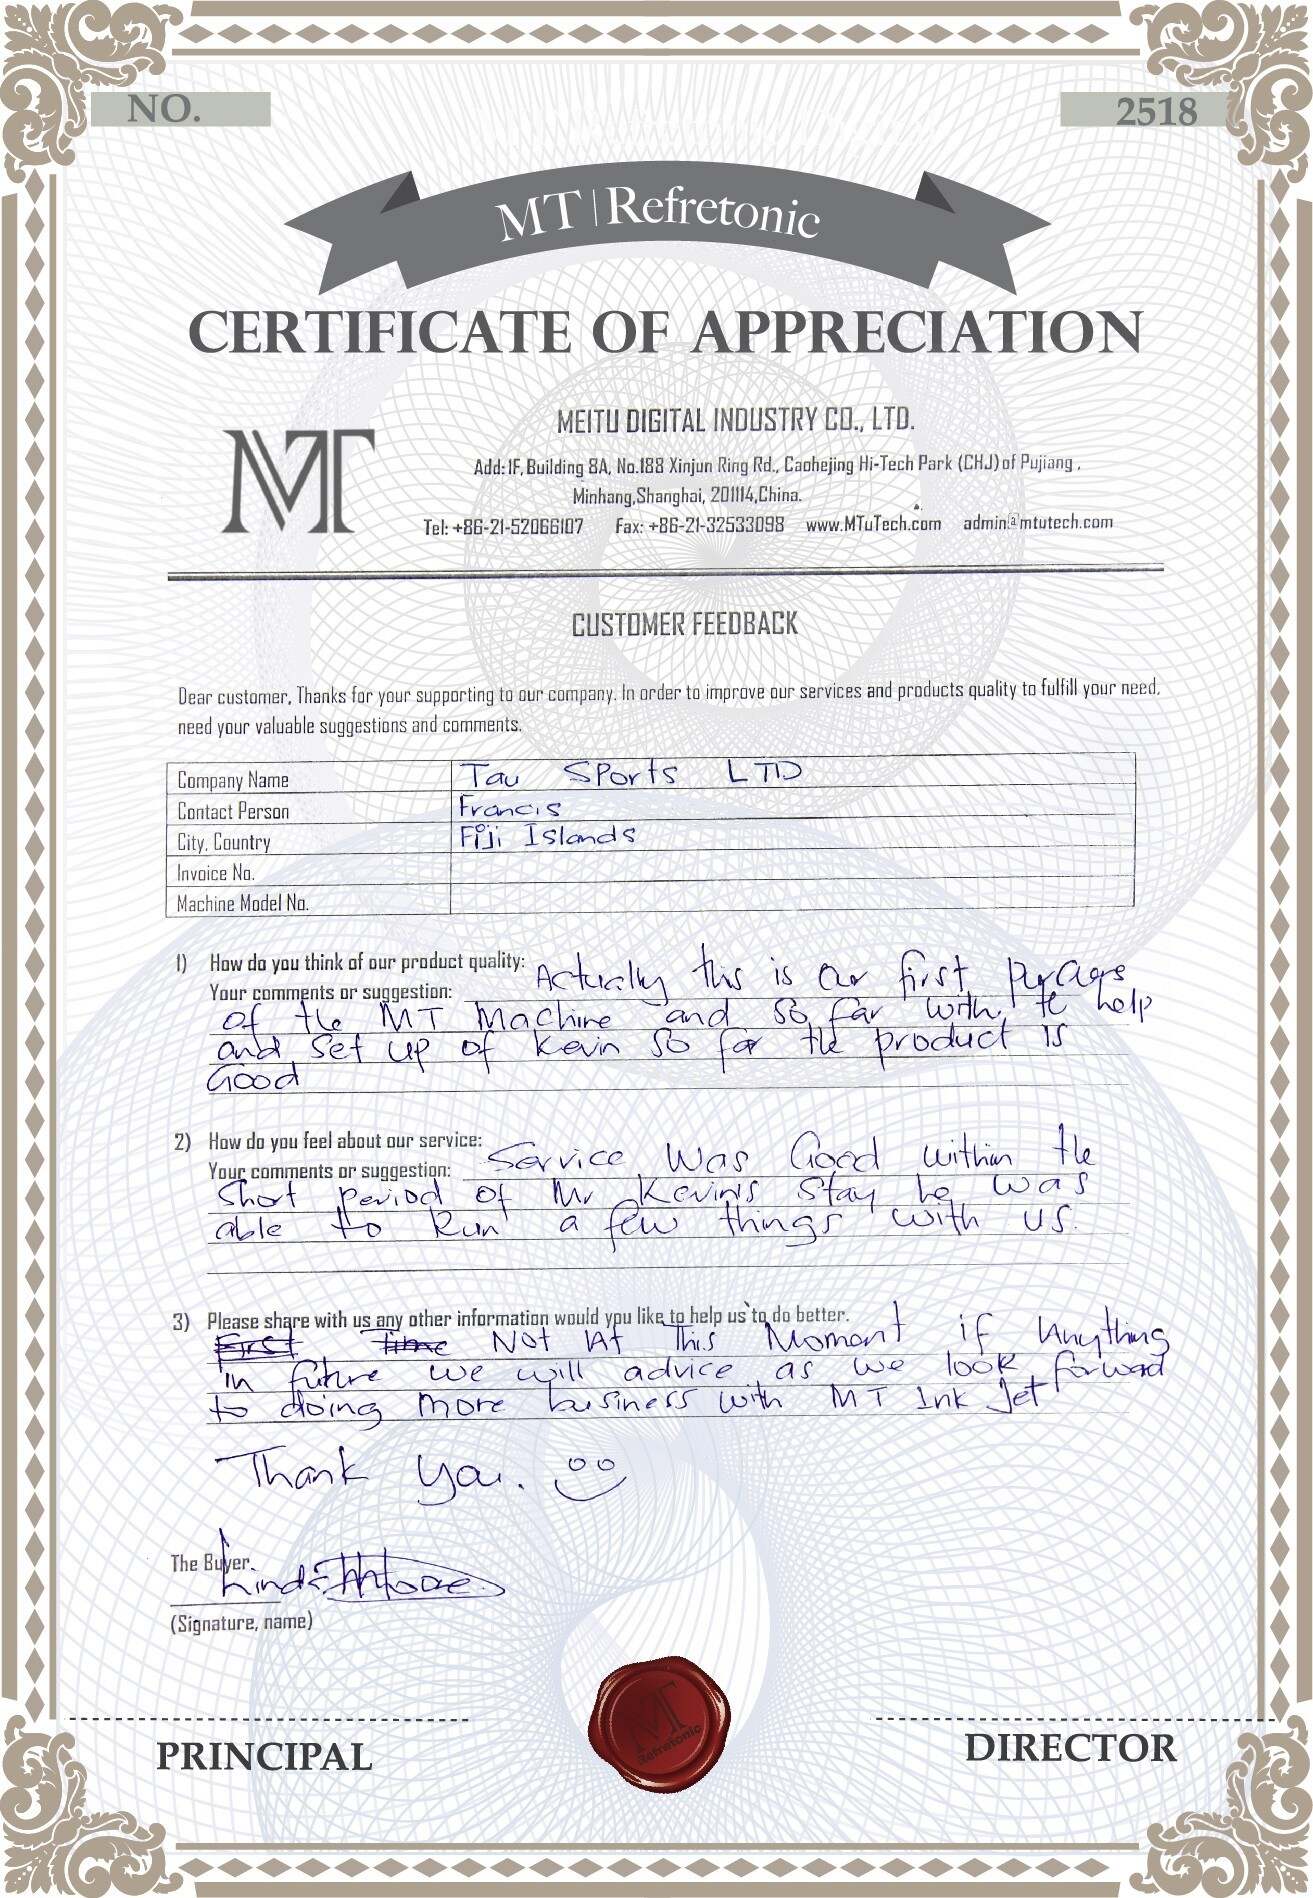 NO.
2518
MT | Refretonic
CERTIFICATE OF APPRECIATION
MT
MEITU DIGITAL INDUSTRY CO., LTD.
Add: 1F, Building 8A, No.188 Xinjun Ring Rd., Caohejing Hi-Tech Park (CHJ) of Pujiang,
Minhang, Shanghai, 201114, China.
Tel: +86-21-52066107 Fax: +86-21-32533098 www.MTuTech.com admin@mtutech.com
CUSTOMER FEEDBACK
Dear customer, Thanks for your supporting to our company. In order to improve our services and products quality to fulfill your need,
need your valuable suggestions and comments.
Company Name Tau Sports LTD
Contact Person Francis
City, Country Fiji Islands
Invoice No.
Machine Model No.
1) How do you think of our product quality:
Your comments or suggestion: Actually this is our first
of the MT Machine and so far with te help
and set up of Kevin so far the product is
Good
2) How do you feel about our service:
Your comments or suggestion: Service Was Good within the
short period of Mr Kevin's stay he was
able to Run a few things with us.
3) Please share with us any other information would you like to help us to do better.
First Time Not At This Moment if Anything
in future we will advice as we look forward
to doing more business with MT Ink Jet
Thank you.
The Buyer.
Linda
(Signature, name)
MT
Refretonic
PRINCIPAL
DIRECTOR